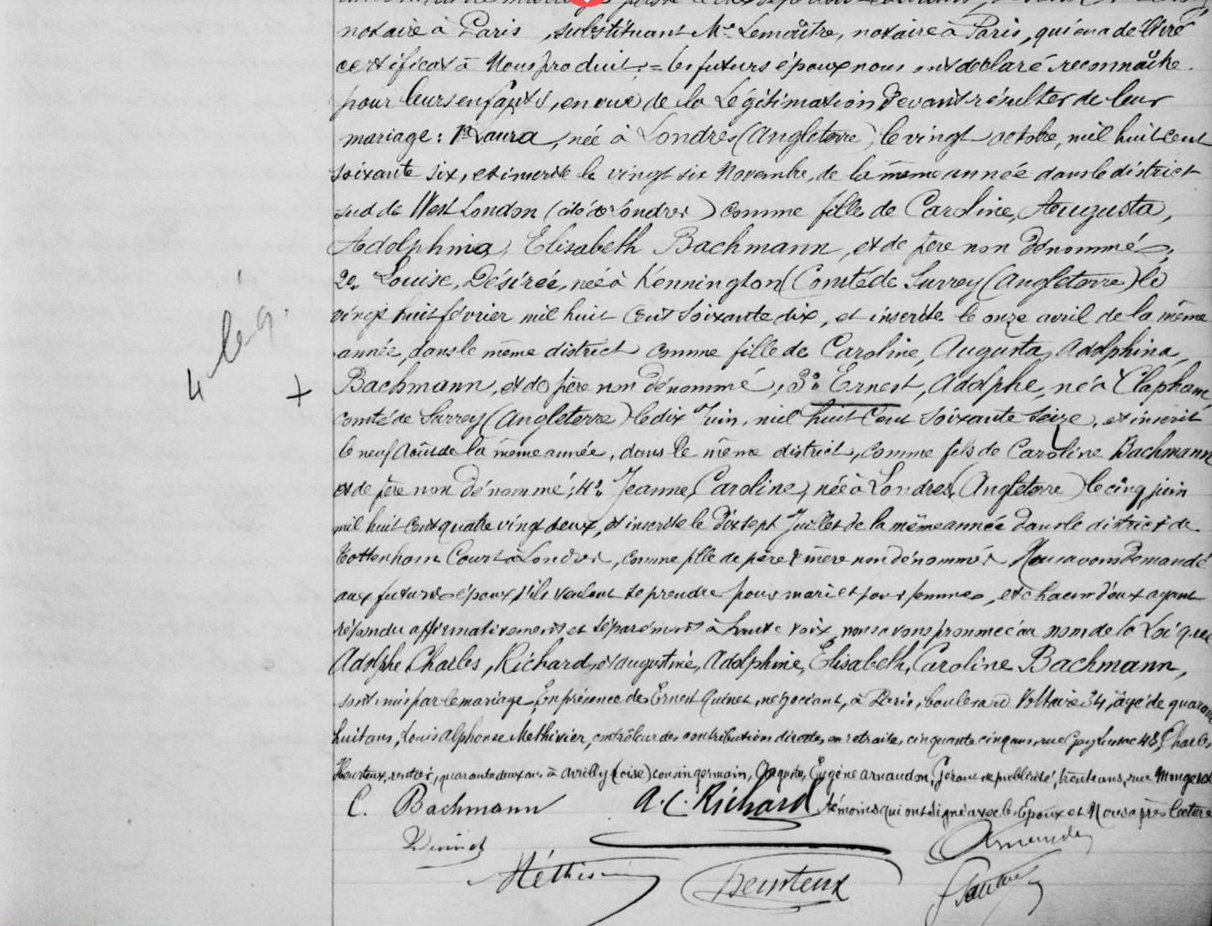 notaire à Paris, substituant Me Lemaître, notaire à Paris, qui en a délivré
certificat à Nous produit. = les futurs époux nous ont déclaré reconnaître
pour leurs enfants, en vue de la Légitimation devant résulter de leur
mariage : 1° Laura, née à Londres (Angleterre) le vingt octobre, mil huit cent
soixante six, et inscrite le vingt six Novembre, de la même année dans le district
sud de West London (cité de Londres) comme fille de Caroline, Augusta,
Adolphina, Elisabeth Bachmann, et de père non dénommé,
2° Louise, Désirée, née à Kennington (Comté de Surrey (Angleterre) le
vingt huit février mil huit cent soixante dix, et inscrite le onze avril de la même
année, dans le même district comme fille de Caroline, Augusta, Adolphina,
4 lég. +
Bachmann, et de père non dénommé, 3° Ernest, Adolphe, né à Clapham
comté de Surrey (Angleterre) le dix Juin, mil huit cent soixante seize, et inscrit
le neuf Août de la même année, dans le même district, comme fils de Caroline Bachmann
et de père non dénommé ; 4° Jeanne, Caroline, née à Londres (Angleterre) le cinq juin
mil huit cent quatre vingt deux, et inscrite le dix sept Juillet de la même année dans le district de
Tottenham Court à Londres, comme fille de père & mère non dénommés Nous avons demandé
aux futurs époux s'ils veulent se prendre pour mari et pour femme, et chacun d'eux ayant
répondu affirmativement et séparément à haute voix, nous avons prononcé au nom de la Loi que
Adolphe Charles, Richard, et Augustine, Adolphine, Elisabeth, Caroline Bachmann,
sont unis par le mariage. En présence de Ernest Quinet, négociant, à Paris, boulevard Voltaire 34, âgé de quarante
huit ans, Louis Alphonse Methivier, contrôleur des contributions directes, en retraite, cinquante cinq ans, rue Gay Lussac 48, Charles
Heurteux, rentier, quarante deux ans à (Oise) cousin germain, Auguste, Eugène Arnaudon, Gérant de publicité, trente ans, rue
C. Bachmann A. C. Richard témoins qui ont signé avec les Epoux et Nous après lecture
Quinet Arnaudon
Méthivier Heurteux